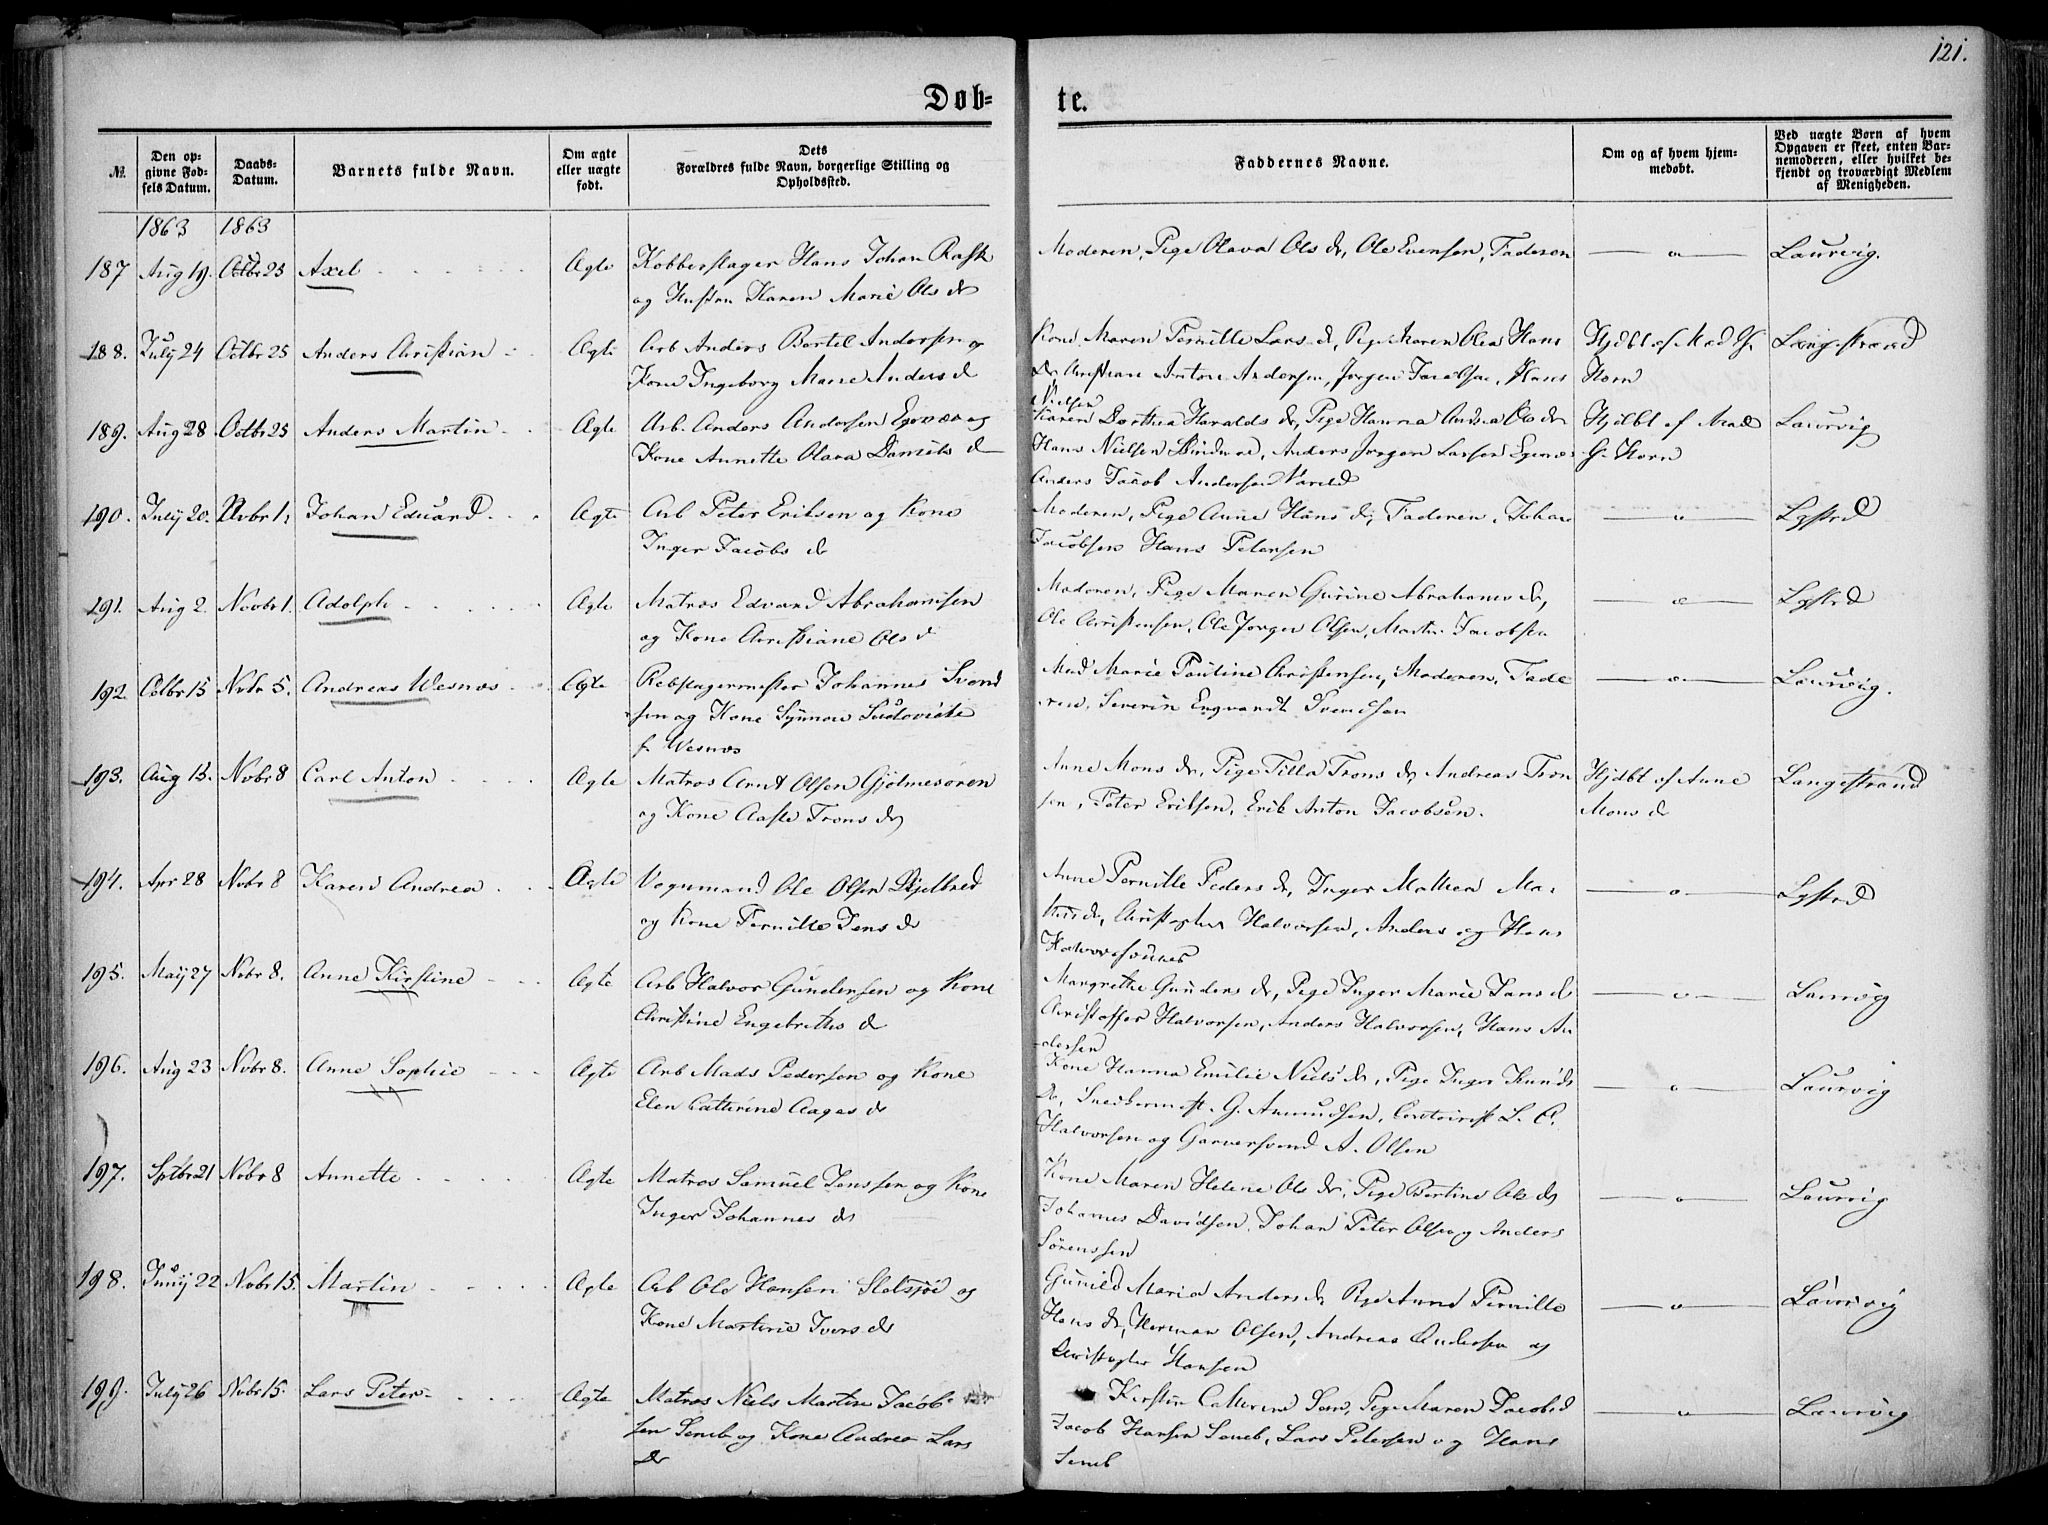 121.
Døb-
te.
№
Den op-
givne Fød-
sels Datum.
Daabs-
Datum.
Barnets fulde Navn.
Om ægte
eller uægte
født.
Dets
Forældres fulde Navn, borgerlige Stilling og
Opholdssted.
Faddernes Navne.
Om og af hvem hjem-
medøbt.
Ved uægte Børn af hvem
Opgaven er skeet, enten Bar-
nemoderen, eller hvilket be-
kjendt og troværdigt Medlem
af Menigheden.
1863 1863
187 Aug 19. Octbr 25 Axel Ægte Kobberslager Hans Johan Rask
og Hustru Karen Marie Ols dr
Moderen, Pige Olava Ols dr, Ole Evensen, Faderen
Laurvig.
188. July 24 Octbr 25 Anders Christian Ægte Arb Anders Bertel Andersen og
Kone Ingeborg Marie Anders d
Kone Maren Pernille Lars d, Pige Maren Olea Hans
dr Christian Anton Andersen, Jørgen Jacobsen, Hans
Nielsen
Hjdbt af Mad G.
Horn
Langestrand
189. Aug 28 Octbr 25 Anders Martin Ægte Arb. Anders Andersen Egenæs og
Kone Annette Olava Daniels d
Karen Dorthea Haralds dr, Pige Hanna Andrea Ols dr
Hans Nielsen, Anders Jørgen Larsen Egenæs
Anders Jacob Andersen
Hjdbt af Mad
G. Horn
Laurvig
190. July 20. Nvbr 1. Johan Eduard Ægte Arb Peter Eriksen og Kone
Inger Jacobs dr
Moderen, Pige Anne Hans dr, Faderen, Johan
Jacobsen Hans Petersen
Lgstrd
191. Aug 2. Novbr 1. Adolph Ægte Matros Edvard Abrahamsen
og Kone Christiane Ols d
Moderen, Pige Maren Gurine Abrahams dr,
Ole Christensen, Ole Jørgen Olsen, Martin Jacobsen
Lgstrd
192. Octbr 15 Nvbr 5. Andreas Wesnæs Ægte Rebslagermester Johannes Svend
sen og Kone Synnove Ludovicke
f. Wesnæs
Mad Marie Pauline Christensen, Moderen, Fade
ren, Severin Engvardt Svendsen
Laurvig.
193. Aug 15. Nvbr 8 Carl Anton Ægte Matros Arnt Olsen Gjelmesøren
og Kone Aaste Trons dr
Anne Mons dr, Pige Tilla Trons dr Andreas Tron
sen, Peter Eriksen, Erik Anton Jacobsen.
Hjdbt af Anne
Mons d
Langestrand
194. Apr 28 Nvbr 8 Karen Andrea Ægte Vognmand Ole Olsen Skjelbred
og Kone Pernille Jens dr
Anne Pernille Peders dr, Inger Mathea Ma-
this dr, Christopher Halvorsen, Anders og Hans
Halvorsønner
Lgstrd
195. May 27 Nvbr 8. Anne Kirstine Ægte Arb Halvor Gundersen og Kone
Christine Engebrikts d
Margrethe Gunders dr, Pige Inger Marie Jans d
Christoffer Halvorsen, Anders Halvorsen, Hans An
dersen
Laurvig
196. Aug 23 Nvbr 8. Anne Sophie Ægte Arb Mads Pedersen og Kone
Elen Cathrine Aages d
Kone Hanna Emilie Niels dr, Pige Inger Knuds
dr, Snedkermest. G. Amundsen, Contoirist L. C.
Halvorsen og Garversvend A. Olsen
Laurvig
197. Sptbr 21 Nvbr 8 Annette Ægte Matros Samuel Jenssen og Kone
Inger Johannes dr
Kone Maren Helene Ols dr, Pige Bertine Ols dr
Johannes Davidsen, Johan Peter Olsen og Anders
Sørenssen
Laurvig
198. Juny 22 Nvbr 15. Martin Ægte Arb Ole Hansen Sletsjøe og
Kone Martine Ivers dr
Gunild Maria Anders dr Pige Anne Pernille
Hans dr, Herman Olsen, Andreas Andersen og
Christopher Hansen
Laurvig
199. July 26 Nvbr 15. Lars Peter Ægte Matros Niels Martin Jacob-
sen Semb og Kone Andrea Lars
dr
Kirstine Cathrine Sem, Pige Maren Jacobs d
Jacob Hansen Semb, Lars Petersen og Hans
Semb
Laurvig